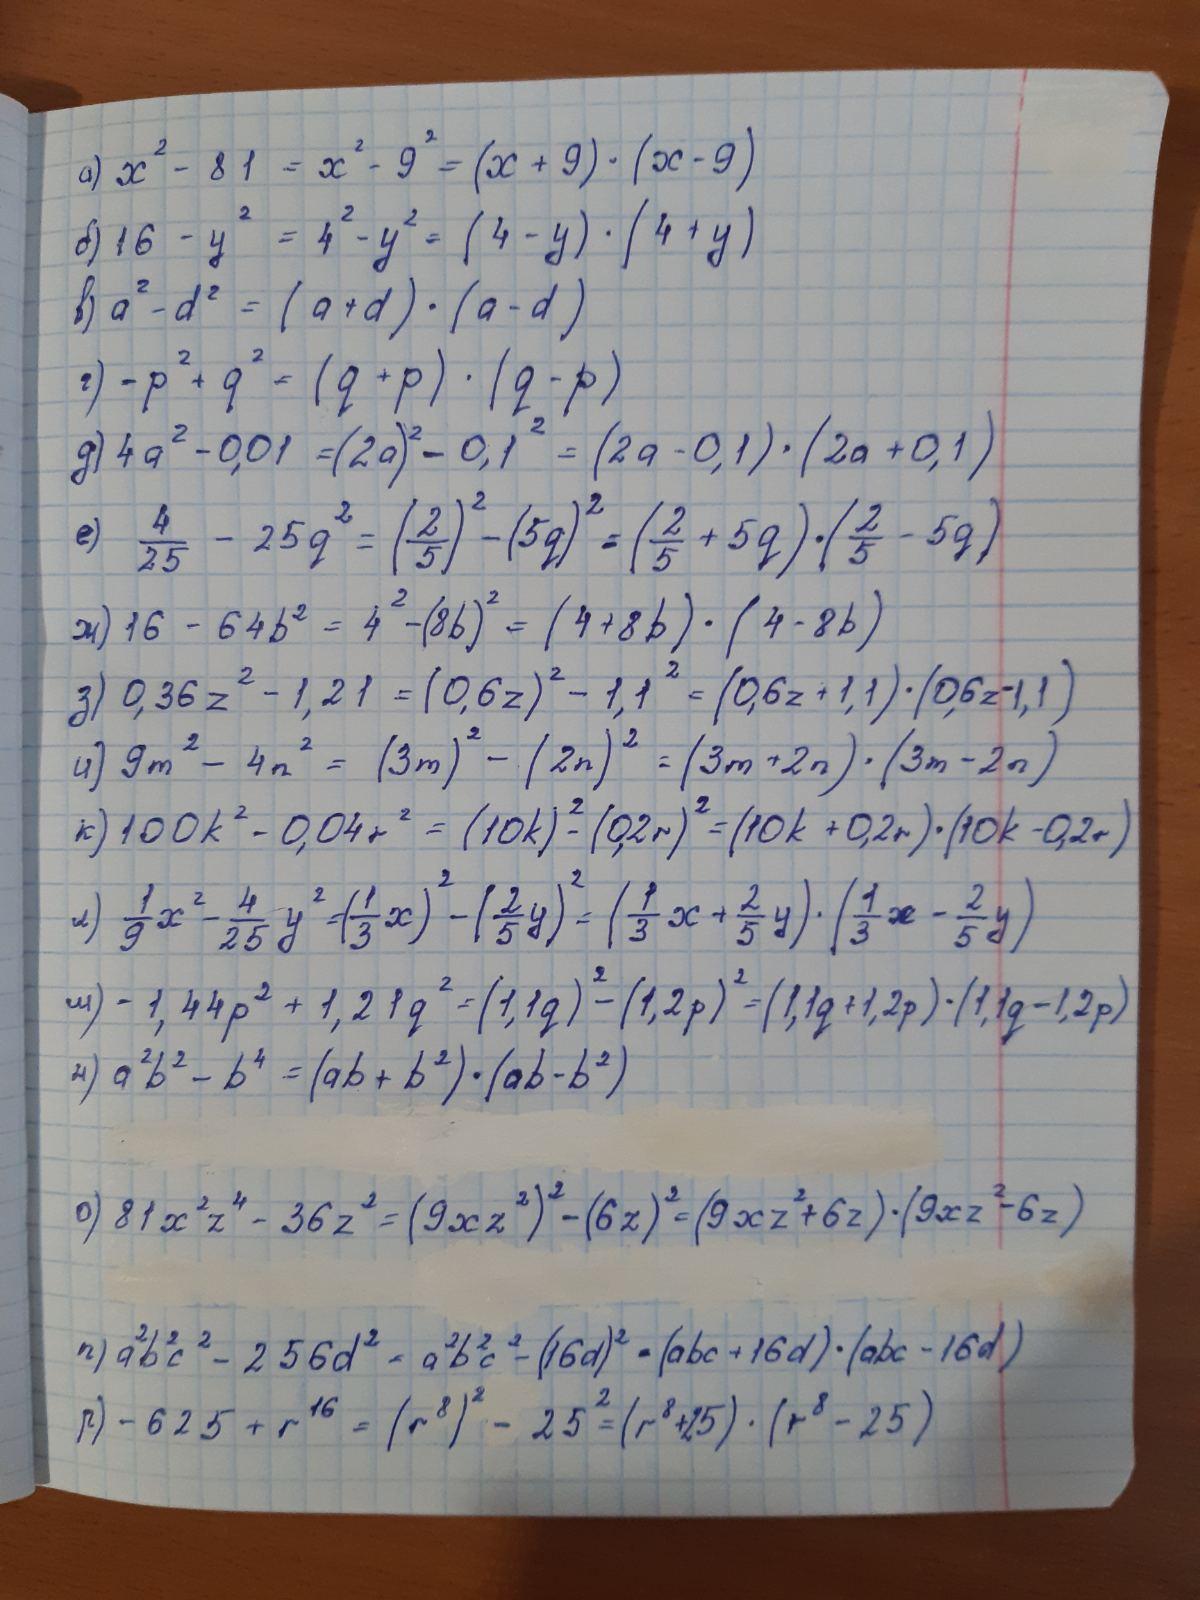 а) x² - 81 = x² - 9² = (x + 9) · (x - 9)
б) 16 - y² = 4² - y² = (4 - y) · (4 + y)
в) a² - d² = (a + d) · (a - d)
г) -p² + q² = (q + p) · (q - p)
д) 4a² - 0,01 = (2a)² - 0,1² = (2a - 0,1) · (2a + 0,1)
е) 4/25 - 25q² = (2/5)² - (5q)² = (2/5 + 5q) · (2/5 - 5q)
ж) 16 - 64b² = 4² - (8b)² = (4 + 8b) · (4 - 8b)
з) 0,36z² - 1,21 = (0,6z)² - 1,1² = (0,6z + 1,1) · (0,6z - 1,1)
и) 9m² - 4n² = (3m)² - (2n)² = (3m + 2n) · (3m - 2n)
к) 100k² - 0,04r² = (10k)² - (0,2r)² = (10k + 0,2r) · (10k - 0,2r)
л) 1/9x² - 4/25y² = (1/3x)² - (2/5y)² = (1/3x + 2/5y) · (1/3x - 2/5y)
м) -1,44p² + 1,21q² = (1,1q)² - (1,2p)² = (1,1q + 1,2p) · (1,1q - 1,2p)
н) a²b² - b⁴ = (ab + b²) · (ab - b²)
о) 81x²z⁴ - 36z² = (9xz²)² - (6z)² = (9xz² + 6z) · (9xz² - 6z)
п) a²b²c² - 256d² = a²b²c² - (16d)² = (abc + 16d) · (abc - 16d)
р) -625 + r¹⁶ = (r⁸)² - 25² = (r⁸ + 25) · (r⁸ - 25)